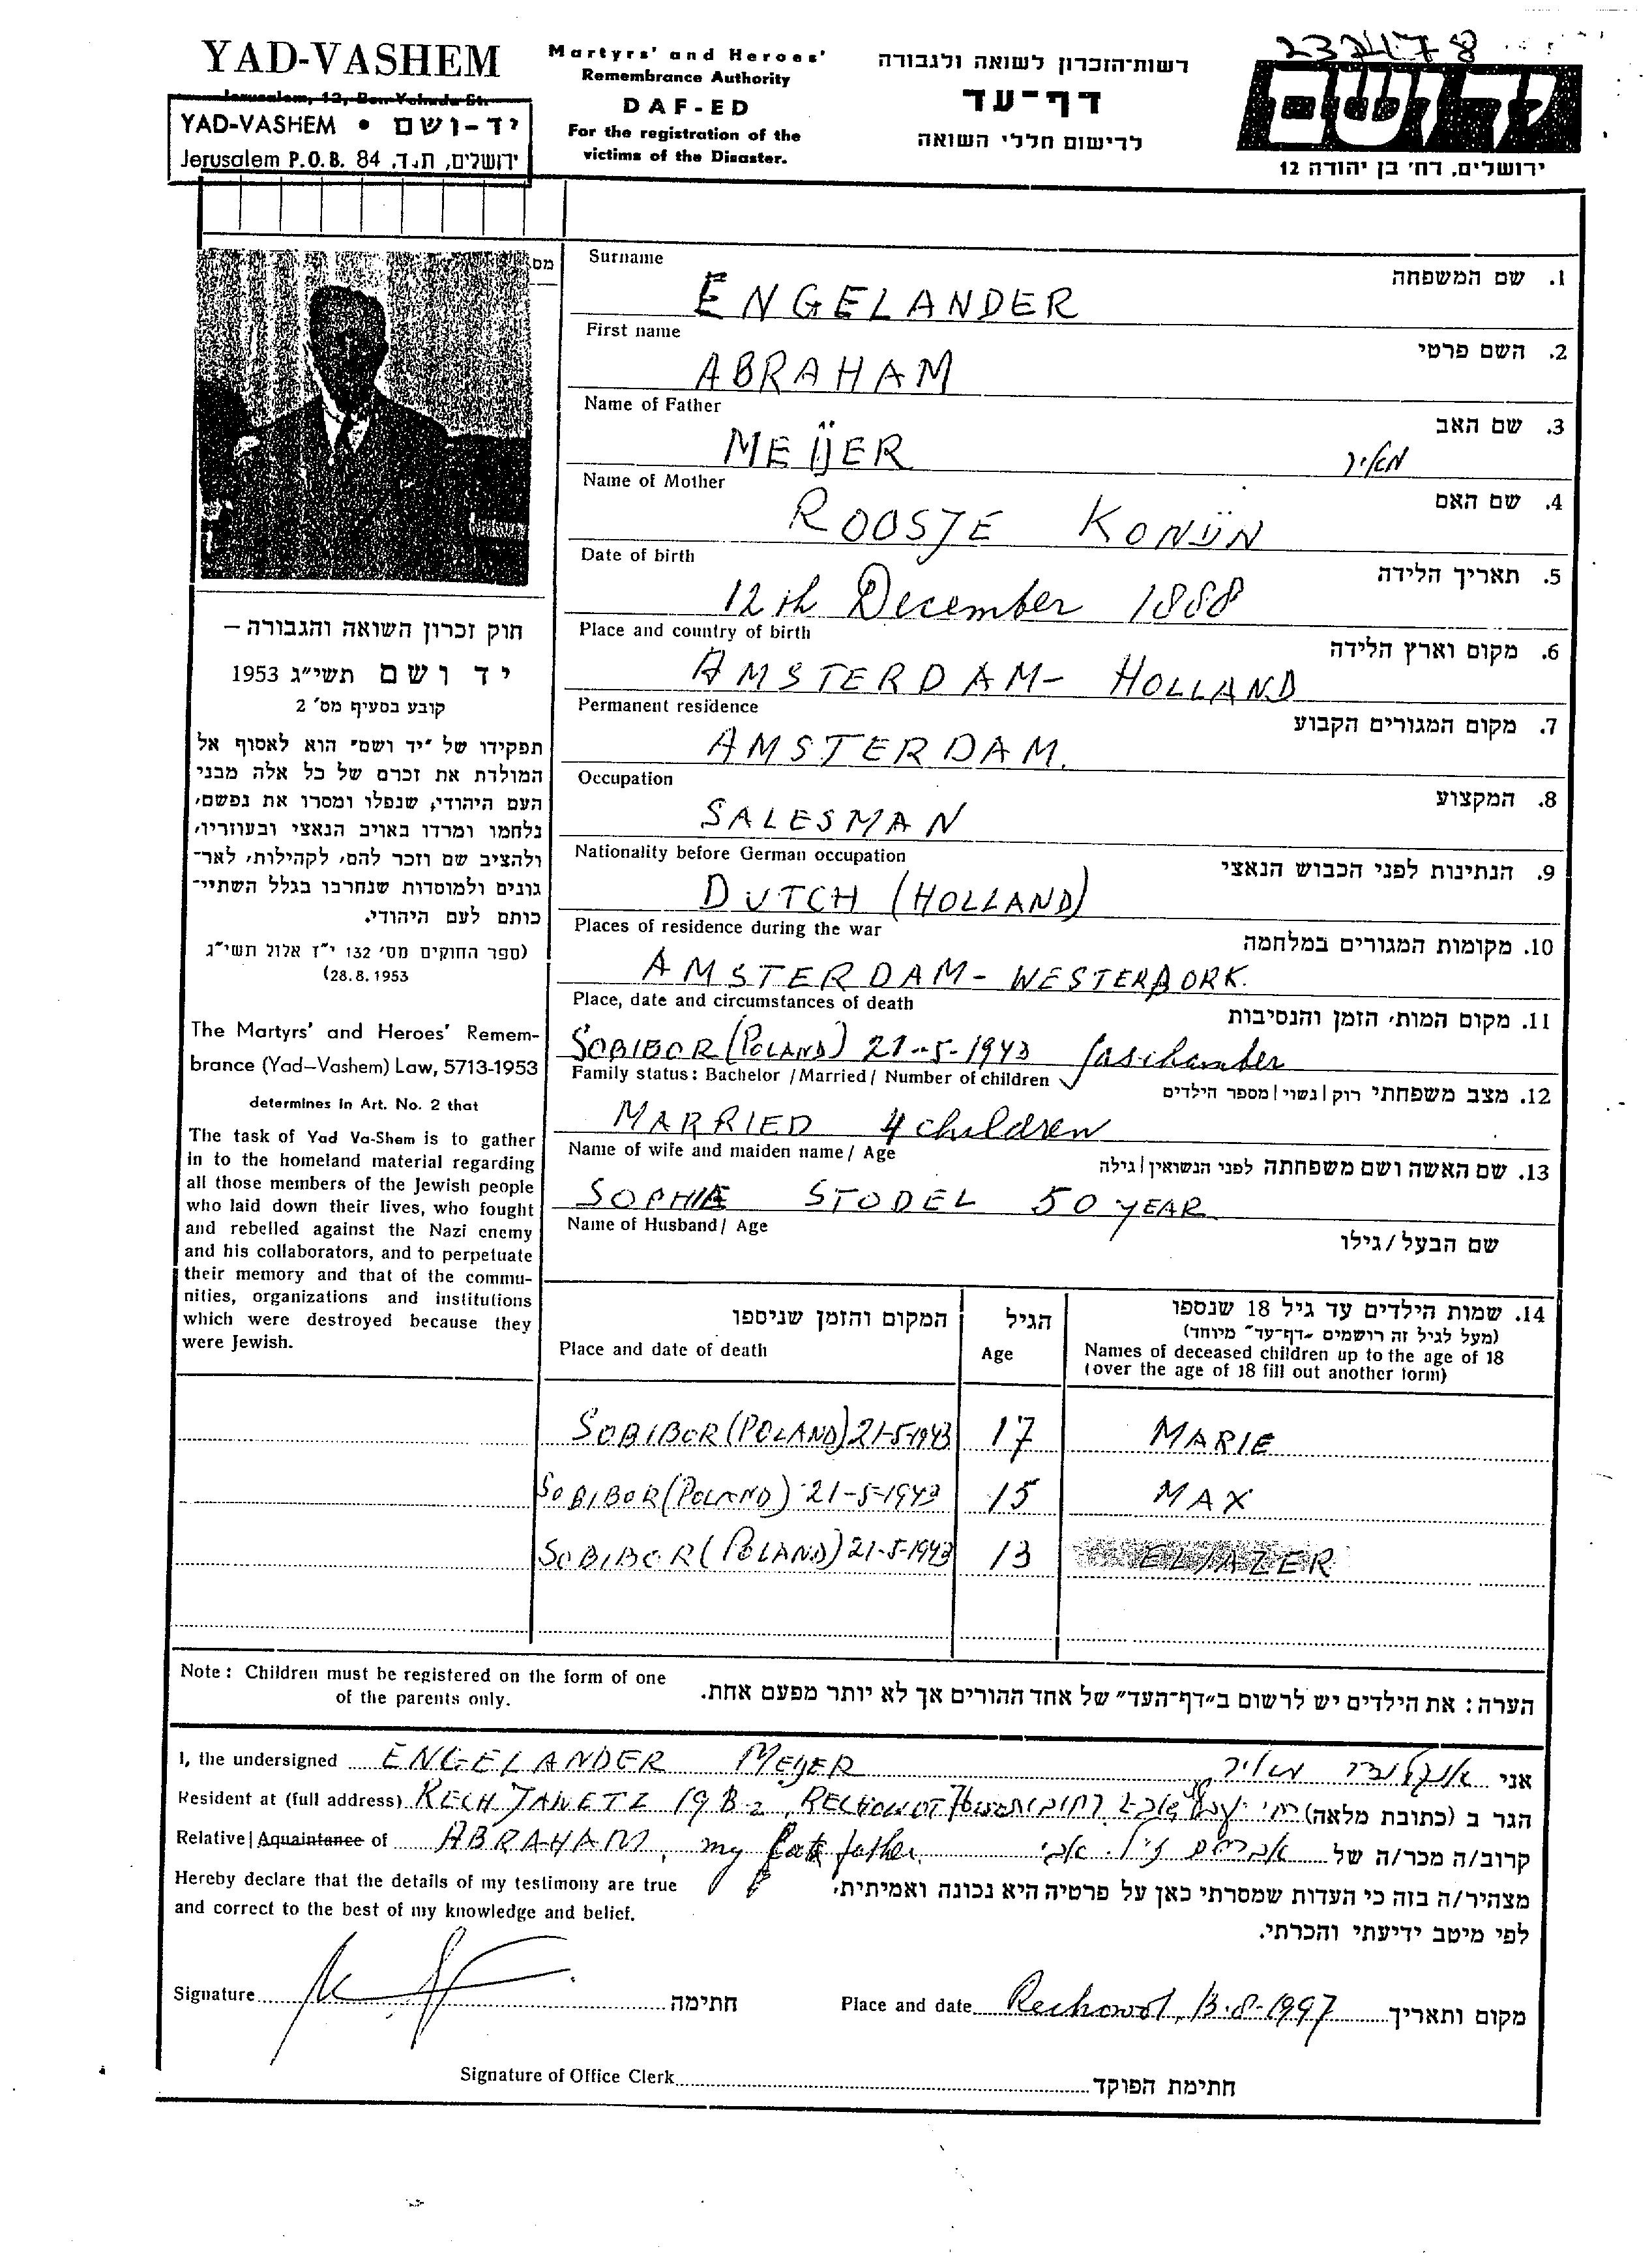 YAD-VASHEM
Jerusalem, 12, Ben Yehuda St.
YAD-VASHEM • יד-ושם
Jerusalem P.O.B. 84 ירושלים, ת.ד.
Martyrs' and Heroes'
Remembrance Authority
DAF-ED
For the registration of the
victims of the Disaster.
רשות־הזכרון לשואה ולגבורה
דף־עד
לרישום חללי השואה
232478
ידושם
ירושלים, רח׳ בן יהודה 12
מס
Surname 1. שם המשפחה
ENGELANDER
First name 2. השם פרטי
ABRAHAM
Name of Father 3. שם האב
MEIJER מאיר
Name of Mother 4. שם האם
ROOSJE KONIJN
Date of birth 5. תאריך הלידה
12th December 1888
Place and country of birth 6. מקום וארץ הלידה
AMSTERDAM- HOLLAND
Permanent residence 7. מקום המגורים הקבוע
AMSTERDAM.
Occupation 8. המקצוע
SALESMAN
Nationality before German occupation 9. הנתינות לפני הכבוש הנאצי
DUTCH (HOLLAND)
Places of residence during the war 10. מקומות המגורים במלחמה
AMSTERDAM- WESTERBORK.
Place, date and circumstances of death 11. מקום המות, הזמן והנסיבות
SOBIBOR (POLAND) 21-5-1943 gaschamber
Family status: Bachelor / Married / Number of children 12. מצב משפחתי רוק | נשוי | מספר הילדים
MARRIED 4 children
Name of wife and maiden name / Age 13. שם האשה ושם משפחתה לפני הנשואין | גילה
SOPHIE STODEL 50 YEAR
Name of Husband / Age שם הבעל / גילו
חוק זכרון השואה והגבורה –
יד ושם תשי״ג 1953
קובע בסעיף מס׳ 2
תפקידו של ״יד ושם״ הוא לאסוף אל
המולדת את זכרם של כל אלה מבני
העם היהודי, שנפלו ומסרו את נפשם,
נלחמו ומרדו באויב הנאצי ובעוזריו,
ולהציב שם וזכר להם, לקהילות, לאר־
גונים ולמוסדות שנחרבו בגלל השתיי־
כותם לעם היהודי.
(ספר החוקים מס׳ 132 י״ז אלול תשי״ג
28.8.1953)
The Martyrs' and Heroes' Remem-
brance (Yad–Vashem) Law, 5713-1953
determines in Art. No. 2 that
The task of Yad Va-Shem is to gather
in to the homeland material regarding
all those members of the Jewish people
who laid down their lives, who fought
and rebelled against the Nazi enemy
and his collaborators, and to perpetuate
their memory and that of the commu-
nities, organizations and institutions
which were destroyed because they
were Jewish.
המקום והזמן שניספו הגיל 14. שמות הילדים עד גיל 18 שנספו
(מעל לגיל זה רושמים ״דף־עד״ מיוחד)
Place and date of death Age Names of deceased children up to the age of 18
(over the age of 18 fill out another form)
SOBIBOR (POLAND) 21-5-1943 17 MARIE
SOBIBOR (POLAND) 21-5-1943 15 MAX
SOBIBOR (POLAND) 21-5-1943 13 ELIAZER
Note: Children must be registered on the form of one
of the parents only.
הערה: את הילדים יש לרשום ב״דף־העד״ של אחד ההורים אך לא יותר מפעם אחת.
I, the undersigned ENGELANDER MEIJER אנגלנדר מאיר אני
Resident at (full address) RECH JANETZ 19 B-2, RECHOWOT הגר ב (כתובת מלאה)
Relative | Aquaintance of ABRAHAM, my father. אברהם ז״ל. אבי קרוב/ה מכר/ה של
Hereby declare that the details of my testimony are true
and correct to the best of my knowledge and belief.
מצהיר/ה בזה כי העדות שמסרתי כאן על פרטיה היא נכונה ואמיתית,
לפי מיטב ידיעתי והכרתי.
Signature חתימה Place and date Rechowot, 13-8-1997 מקום ותאריך
Signature of Office Clerk חתימת הפוקד